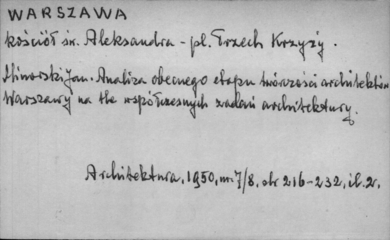 WARSZAWA
kościół św. Aleksandra - pl. Trzech Krzyży.
Minorski Jan. Analiza obecnego etapu twórczości architektów
Warszawy na tle współczesnych zadań architektury.
Architektura, 1950, nr 7/8, str 216-232, il. 2.